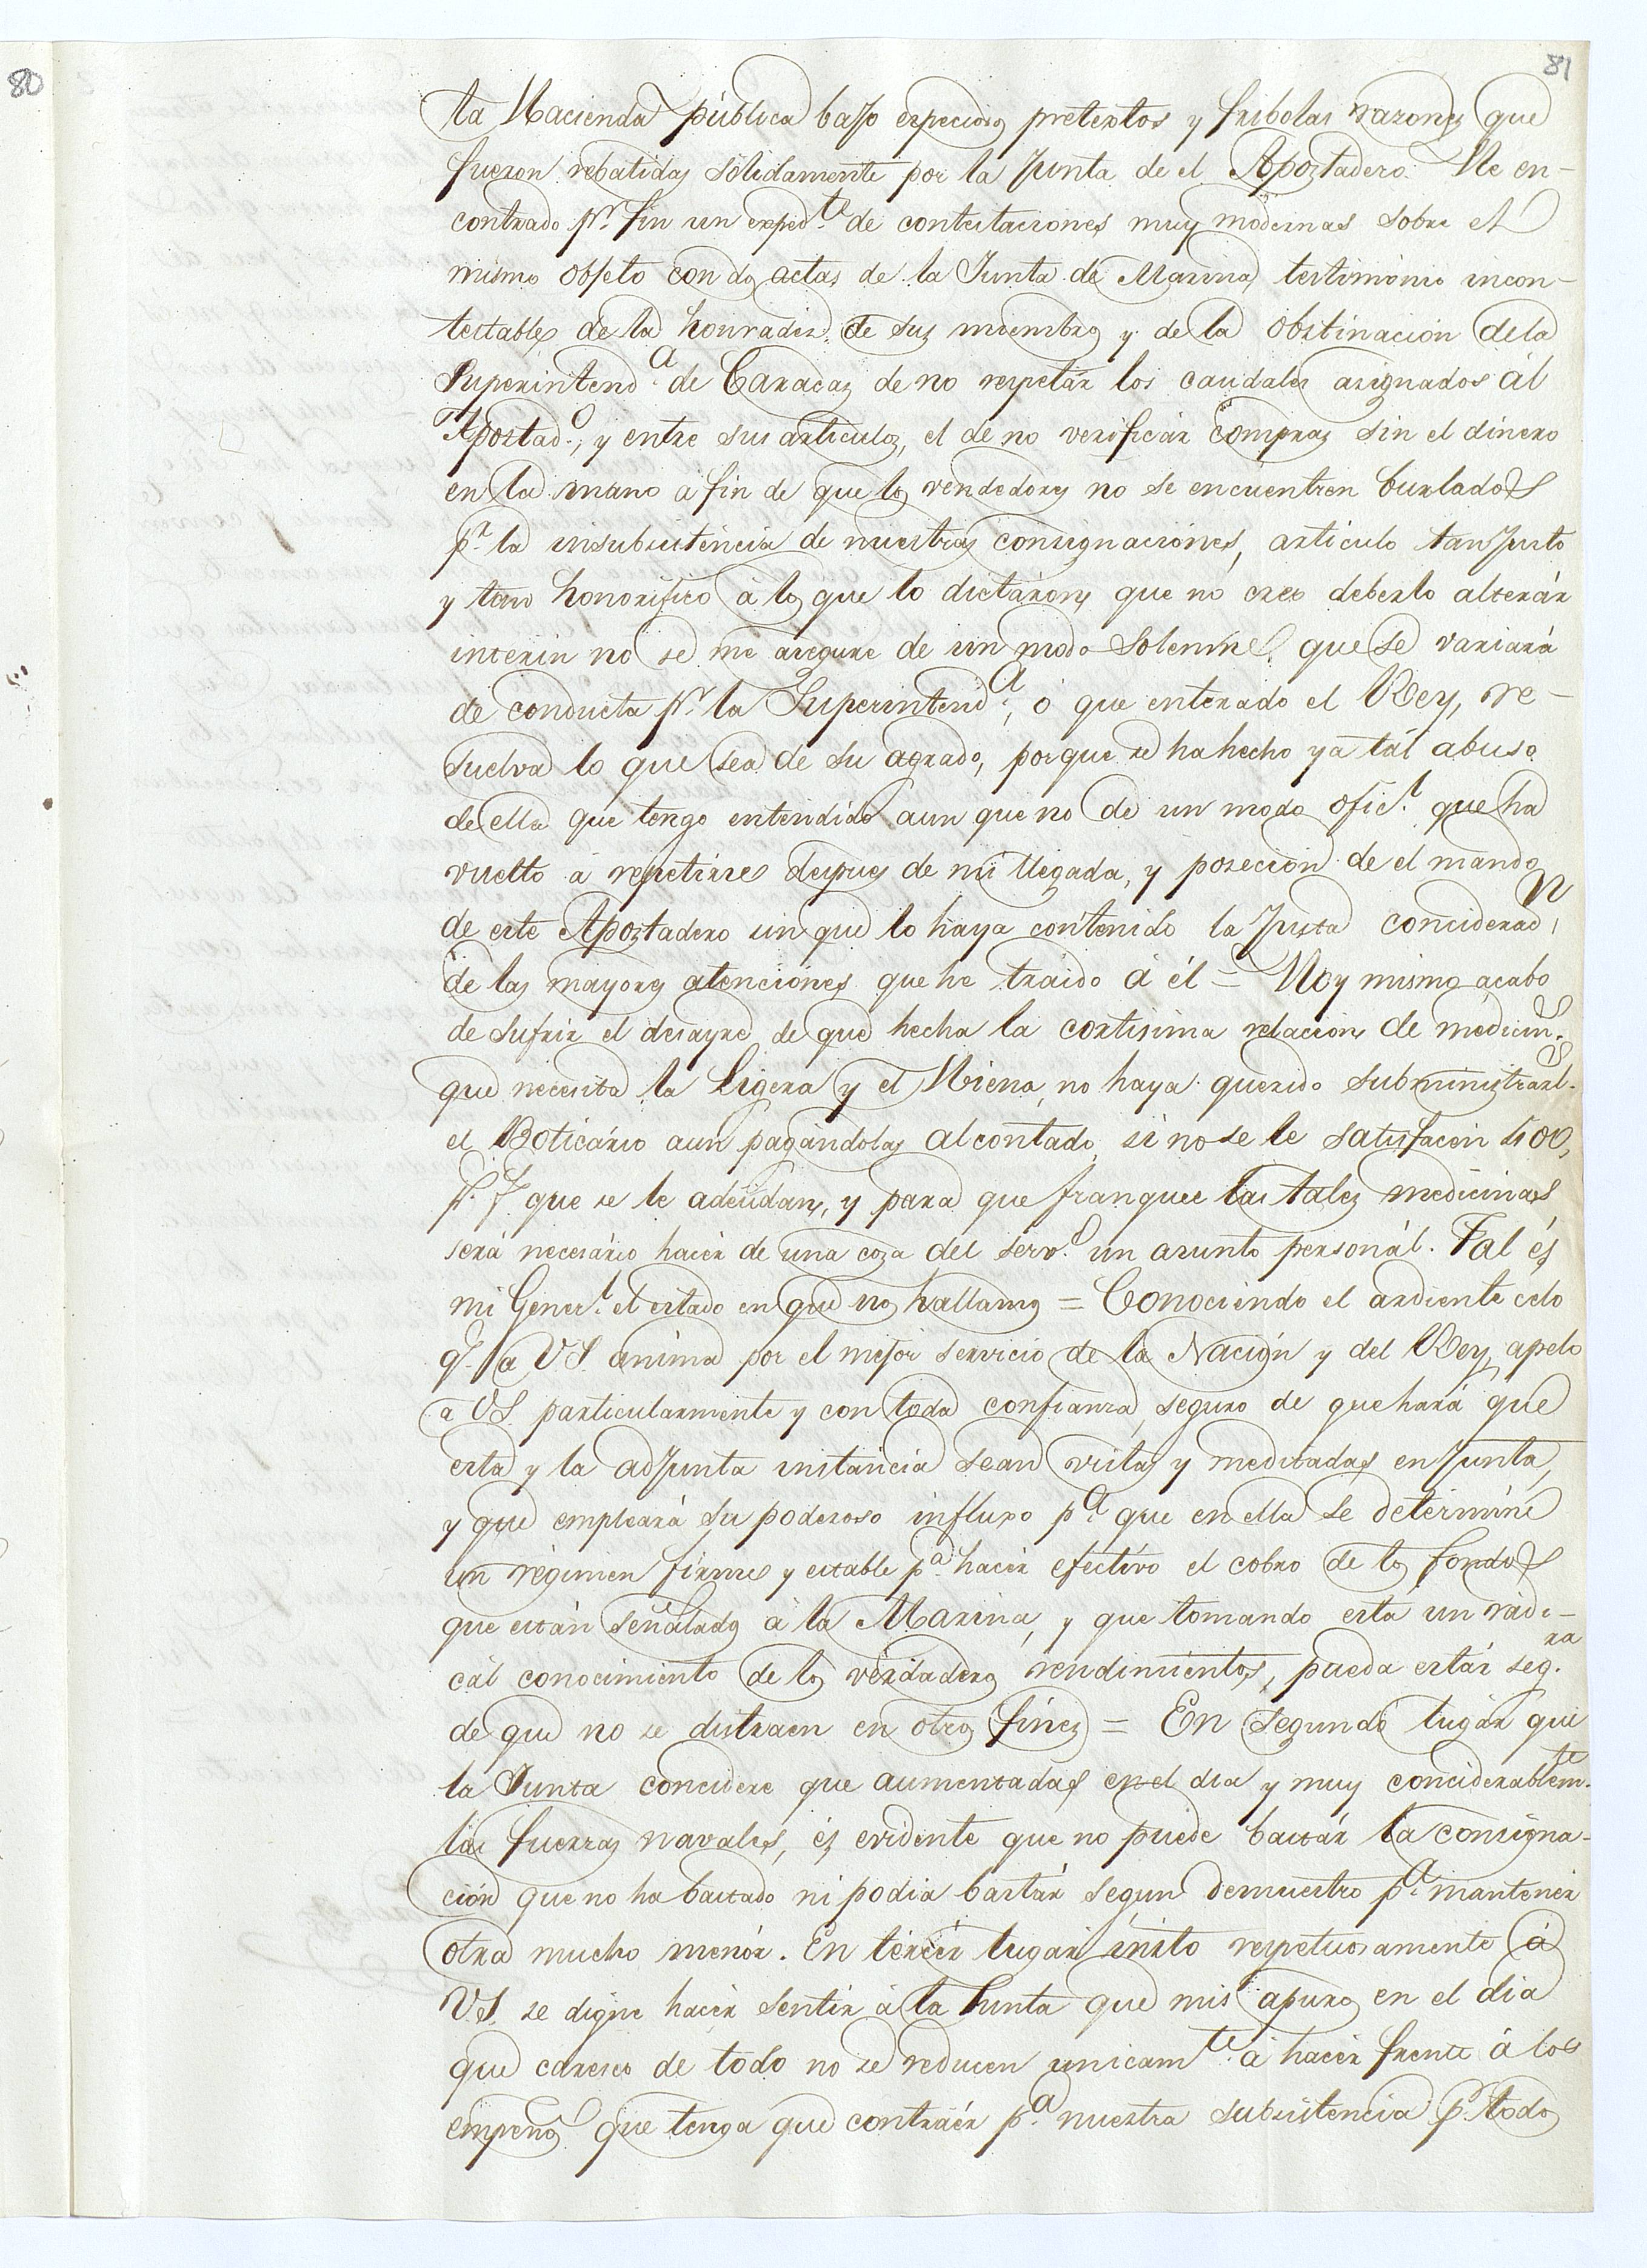 80
81
la Hacienda pública bajo especiosos pretextos y fribolas razones que
fueron rebatidas sólidamente por la Junta de el Apostadero. He en-
contrado pr. fin un expedte. de contestaciones muy modernas sobre el
mismo objeto con dos actas de la Junta de Marina, testimonio incon-
testable de la honradez de sus miembros y de la obstinación dela
Superintenda. de Caracas de no respetár los caudales asignados ál
Apostado., y entre sus articulos, el de no verificár compras sin el dinero
en la mano á fin de que los vendedores no se encuentren burlados
pr. la insubsistencia de nuestras consignaciones, articulo tan justo
y tan honorifico á los que lo dictáron, que no creo deberlo alterár
interin no se me asegure de un modo solemne que se variará
de conducta pr. la Superintenda., ó que enterado el Rey, re-
suelva lo que sea de su agrado, porque se ha hecho ya tál abuso
de ella que tengo entendido aun que no de un modo oficl. que ha
vuelto á repetirse despues de mi llegada, y poseción de el mando
de este Apostadero sin que lo haya contenido la justa considerads.
de las mayores atenciónes que he traido á él = Hoy mismo acabo
de sufrir el desayre de que hecha la cortisima relacion de medicins.
que necesita la Ligera y el Hiena, no haya querido subministrarls.
el Boticário aun pagándolas al contado, si no se le satisfacen 400,
ps. fs. que se le adeudan, y para que franquee las tales medicinas
será necesário hacér de una cosa del servo. un asunto personál. Tal és
mi Generl. el estado en que nos hallamos = Conociendo el ardiente celo
qe. á VS. anima por el mejor servicio de la Nación y del Rey, apelo
a VS. particularmente y con toda confianza, seguro de que hará que
esta y la adjunta instancia sean vistas y meditadas en Junta,
y que empleará su poderoso influxo pa. que en ella se determine
un régimen firme y estable pa. hacér efectivo el cobro de los fondos
que están señalados á la Marina, y que tomando esta un radi-
cál conocimiento de los verdaderos rendimientos, pueda estár segra.
de que no se distraen en otros fines = En segundo lugár que
la Junta concidere que aumentadas en el dia y muy conciderablemte.
las fuerzas navales, és evidente que no puede bastár la consigna-
ción que no ha bastado ni podia bastár segun demuestro pa. mantenér
otra mucho menór. En tercér lugar insto respetuosamente á
VS. se digne hacér sentir á la Junta que mis apuros en el dia
que caresco de todo no se reducen unicamte. á hacér frente á los
empeños que tenga que contraér pa. nuestra subsistencia pr. todos